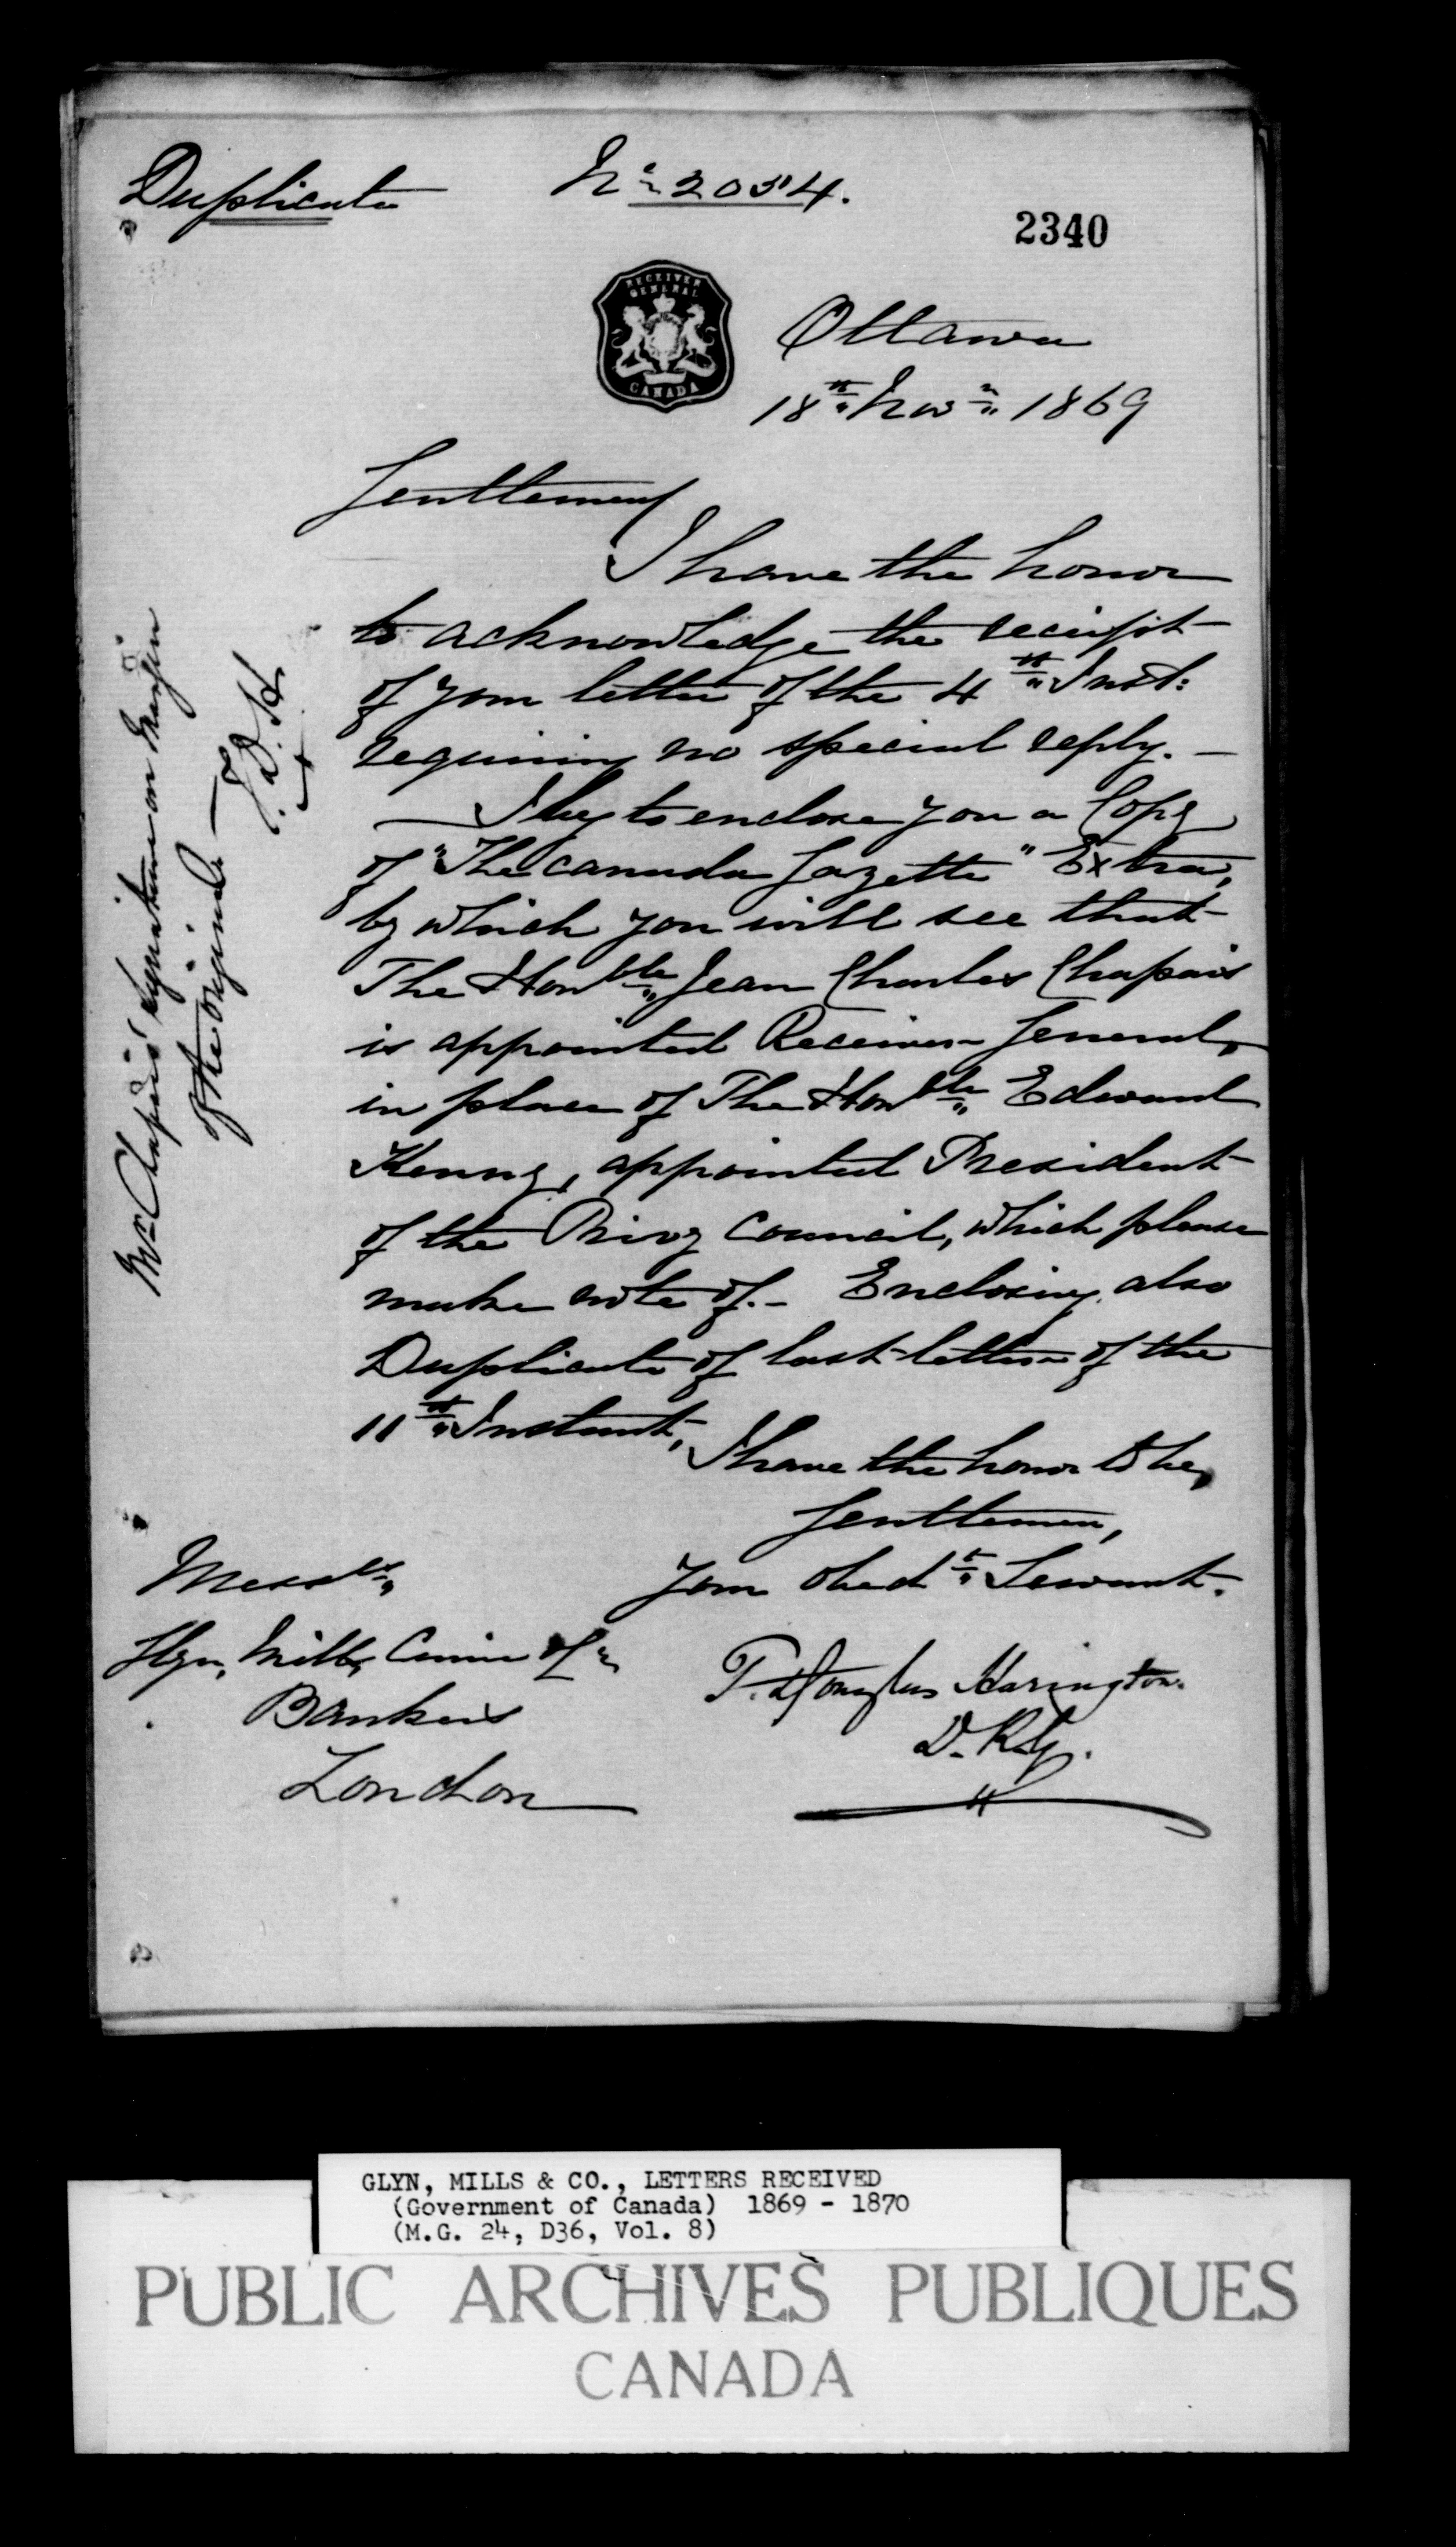 Duplicate
No 2054.
2340
RECEIVER GENERAL
CANADA
Ottawa
18th Novr 1869
Gentlemen,
I have the honor
to acknowledge the receipt
of your letter of the 4th Inst:
requiring no special reply. —
— I beg to enclose you a Copy
of "The Canada Gazette" Extra,
by which you will see that
The Honble Jean Charles Chapais
is appointed Receiver General,
in place of The Honble Edward
Kenny, appointed President
of the Privy Council, which please
make note of. – Enclosing also
Duplicate of last letter of the
11th Instant,
I have the honor to be,
Gentlemen,
Your obedt Servant.
T. Douglas Harington.
D. R. G.
Messrs
Glyn, Mills, Currie & Co
Bankers
London
Mr Chapais' signature on margin
of the original —
T.D.H.
GLYN, MILLS & CO., LETTERS RECEIVED
(Government of Canada) 1869 - 1870
(M.G. 24, D36, Vol. 8)
PUBLIC ARCHIVES PUBLIQUES
CANADA